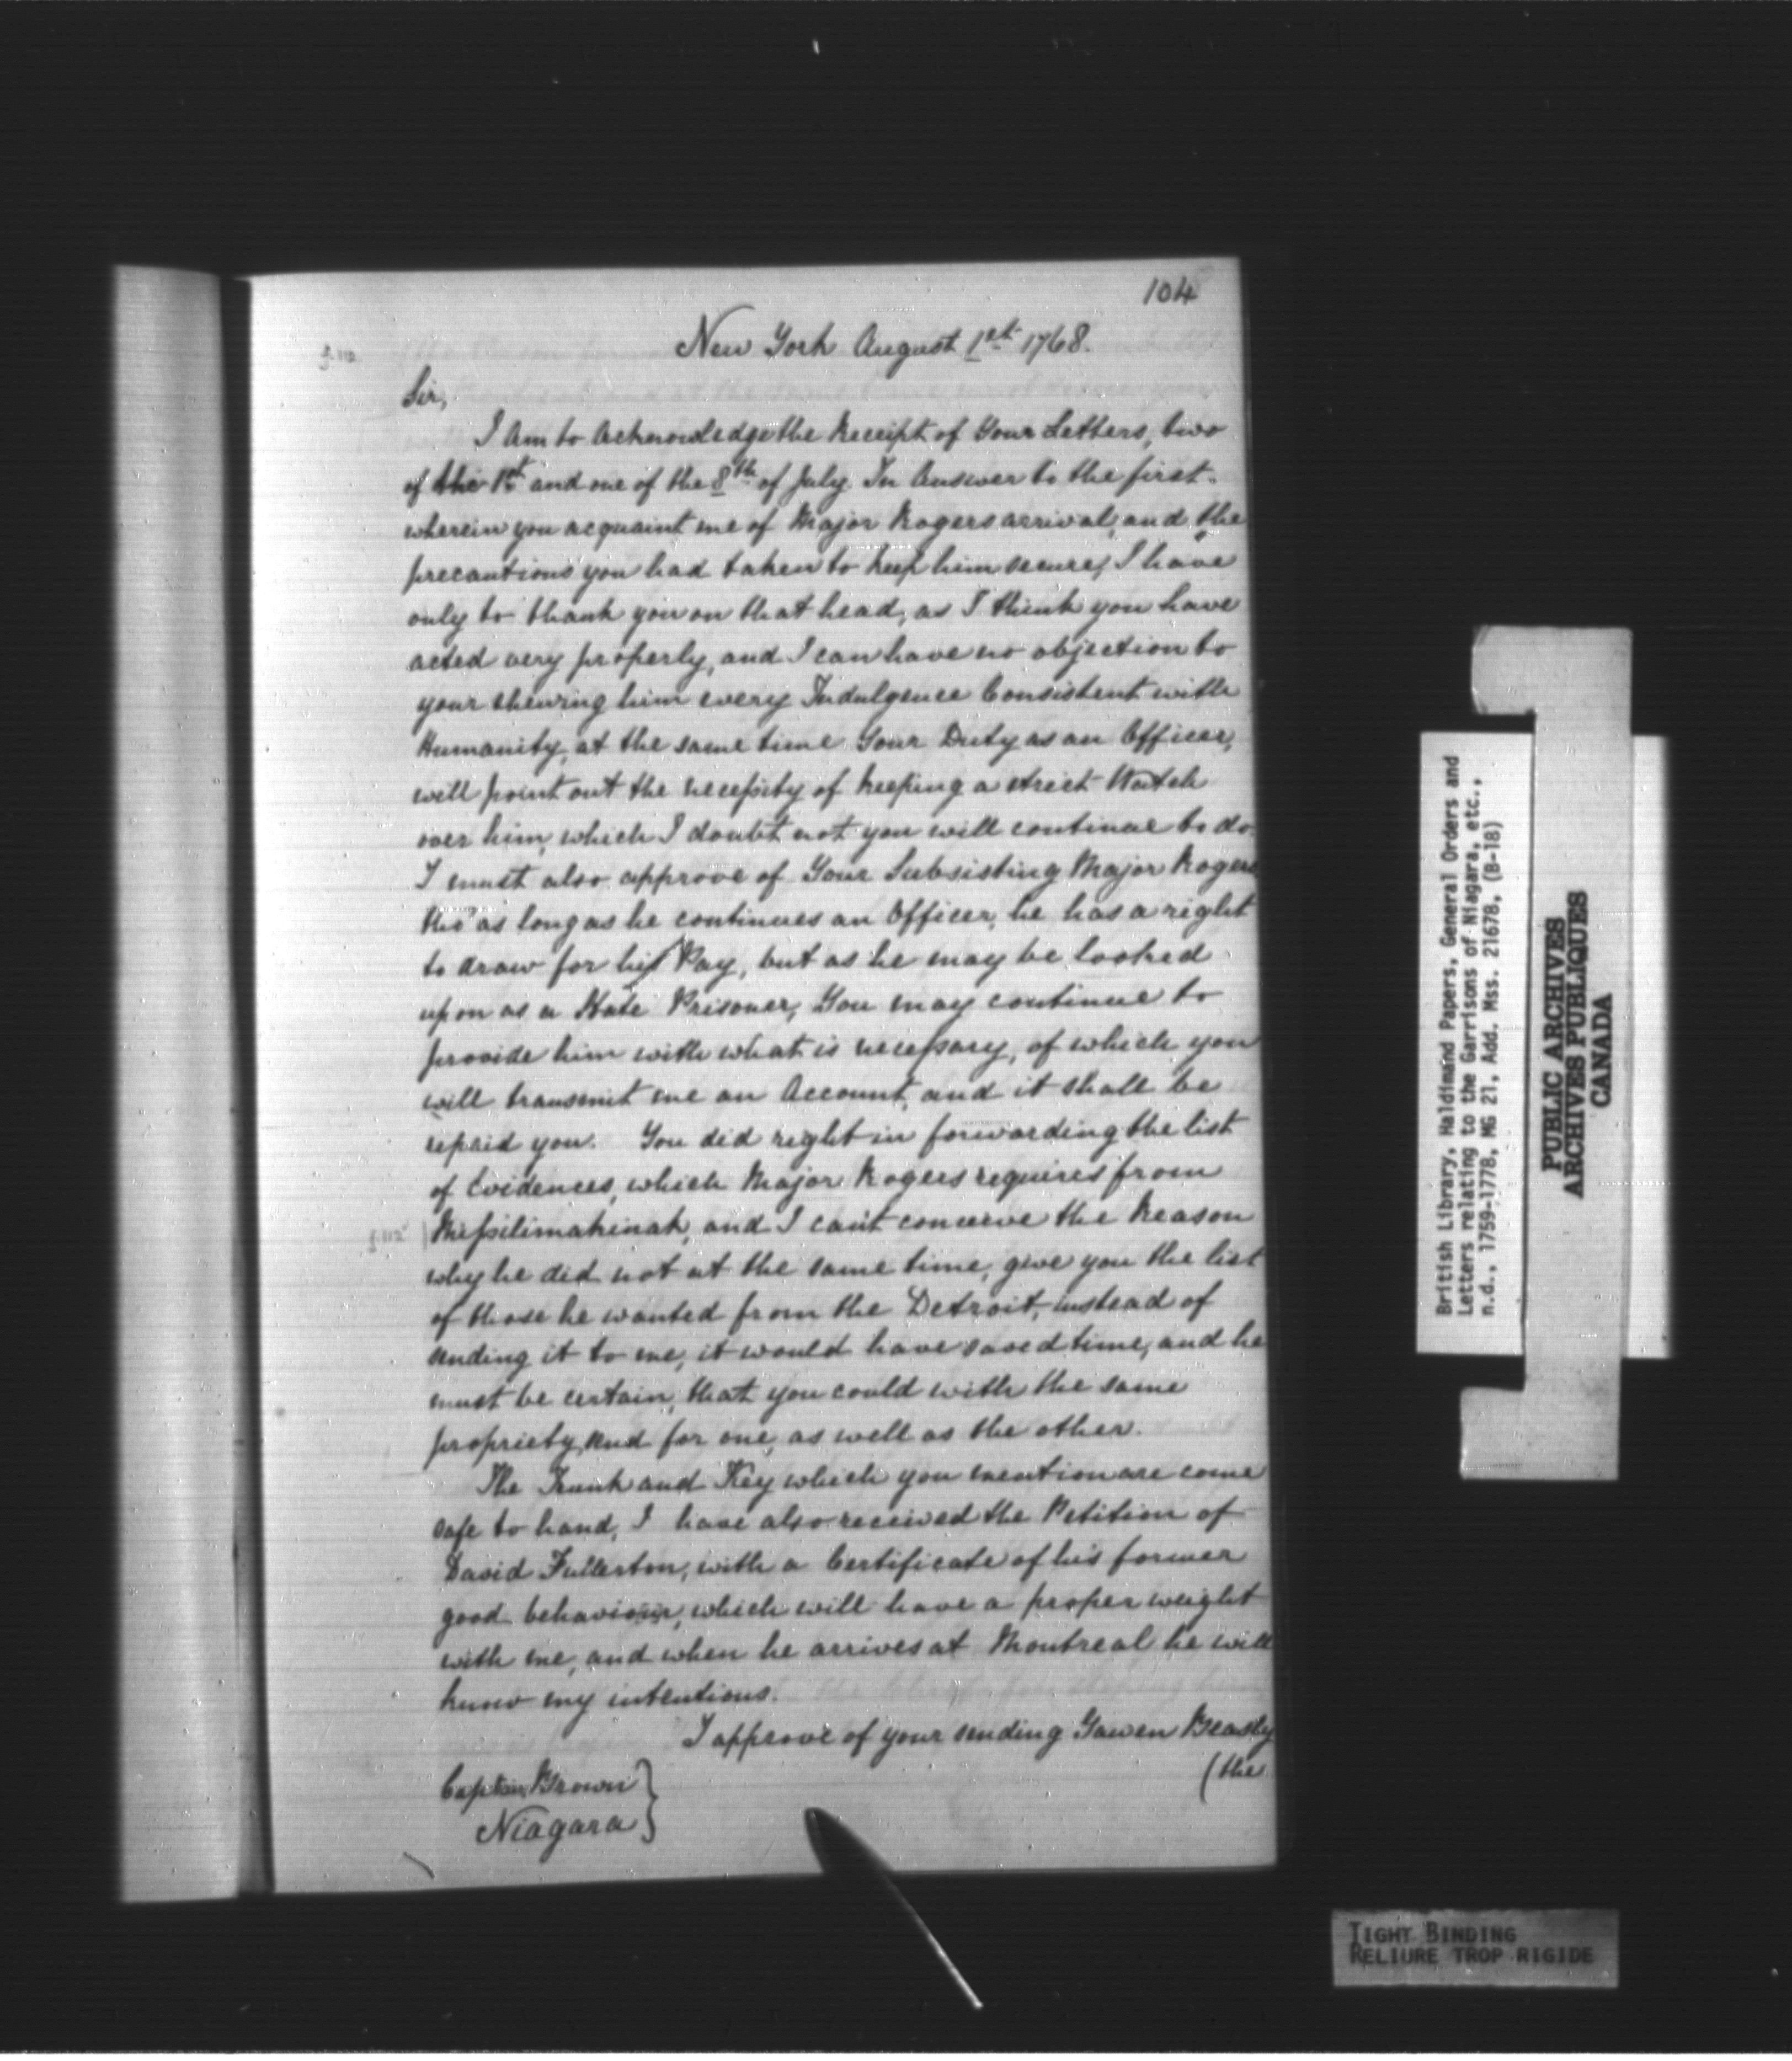 104
New York August 1st 1768.
Sir,
I am to Acknowledge the Receipt of Your Letters, two
of the 1st and one of the 8th of July. In Answer to the first.
wherein you acquaint me of Major Rogers arrival, and the
precautions you had taken to keep him secure, I have
only to thank you on that head, as I think you have
acted very properly, and I can have no objection to
your shewing him every Indulgence Consistent with
Humanity, at the same time Your Duty as an Officer,
will point out the necessity of keeping a strict Watch
over him, which I doubt not you will continue to do.
I must also approve of Your Subsisting Major Rogers
tho' as long as he continues an Officer, he has a right
to draw for his Pay, but as he may be looked
upon as a State Prisoner, You may continue to
provide him with what is necessary, of which you
will transmit me an Account, and it shall be
repaid you. You did right in forwarding the list
of Evidences, which Major Rogers requires from
Missilimakinak, and I can't conceive the Reason
why he did not at the same time, give you the list
of those he wanted from the Detroit, instead of
sending it to me, it would have saved time, and he
must be certain, that you could with the same
propriety send for one, as well as the other.
The Trunk and Key which you mention are come
safe to hand, I have also received the Petition of
David Fullerton, with a Certificate of his former
good behaviour, which will have a proper weight
with me, and when he arrives at Montreal he will
know my intentions.
I approve of your sending Gawen Beasly
(the
Captain Brown
Niagara
British Library, Haldimand Papers, General Orders and
Letters relating to the Garrisons of Niagara, etc.,
n.d., 1759-1778, MG 21, Add. Mss. 21678, (B-18)
PUBLIC ARCHIVES
ARCHIVES PUBLIQUES
CANADA
TIGHT BINDING
RELIURE TROP RIGIDE